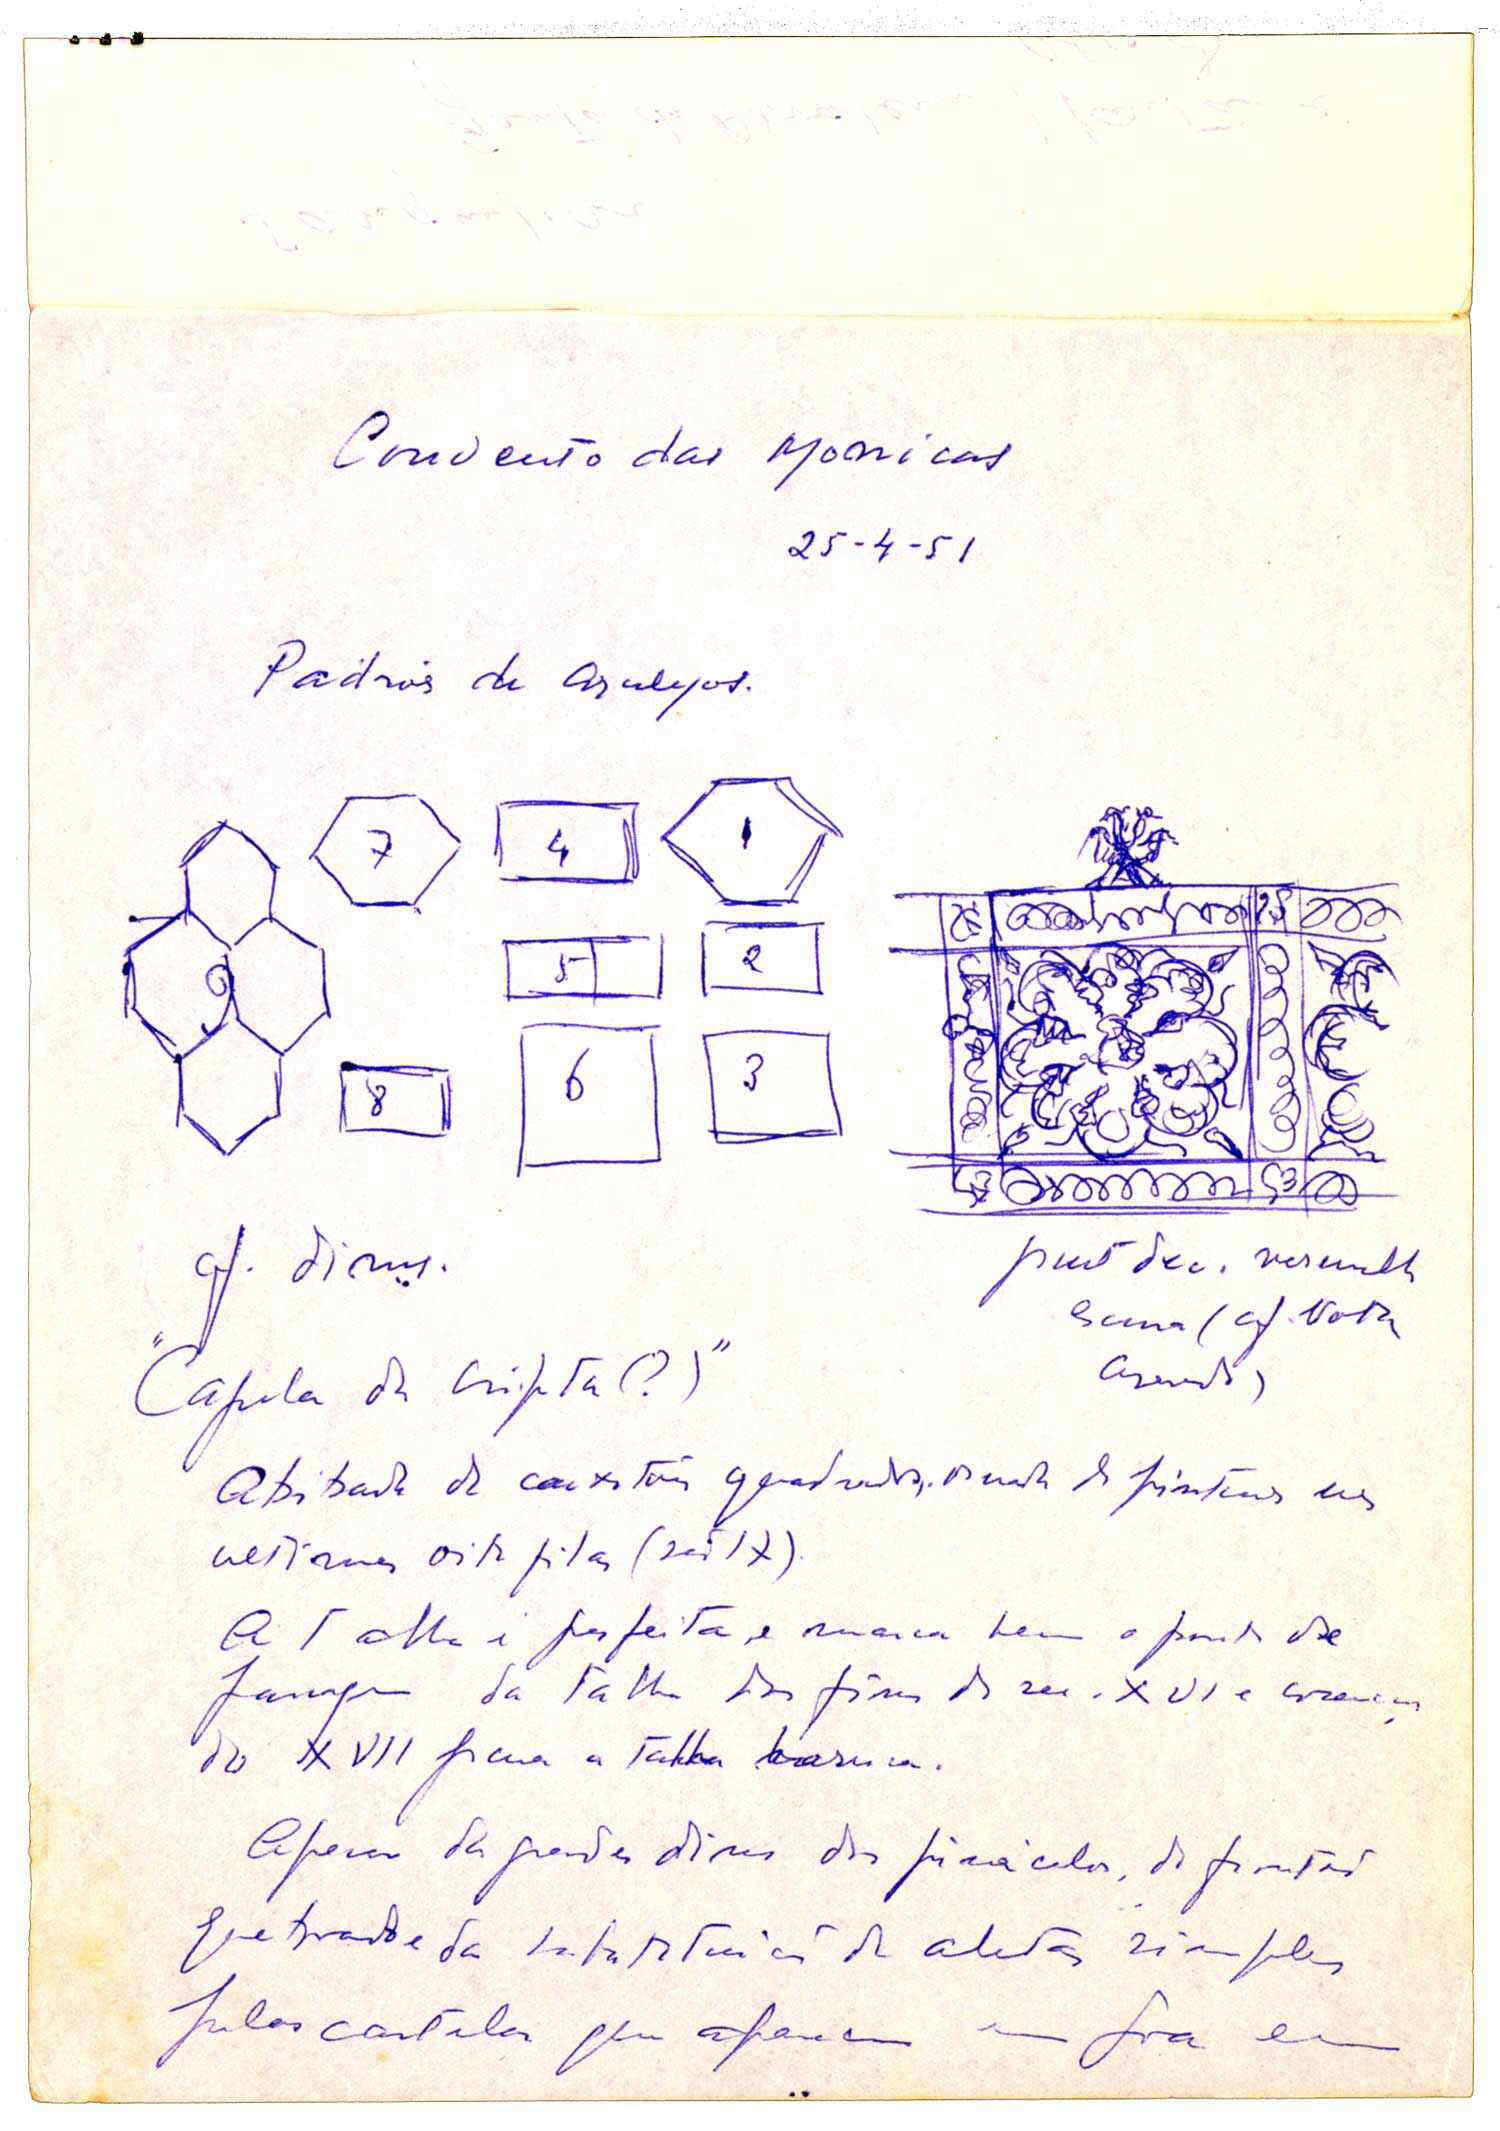 Convento das Monicas
25-4-51
Padrões de azulejos.
7 4 1
9 5 2
8 6 3
cf. dims.
dec. vermelh
(cf.
"Capela da cripta (?)"
Abobada de caixotões quadrados, ornada de pinturas nas
ultimas oito filas
A talha é perfeita e marca bem o ponto de
da talha dos fins do sec. XVI e
do XVII para a talha barroca.
Apesar das grandes dims dos pináculos, do frontão
quebrado e da substituição de aletas simples
pelas cartelas que aparecem em